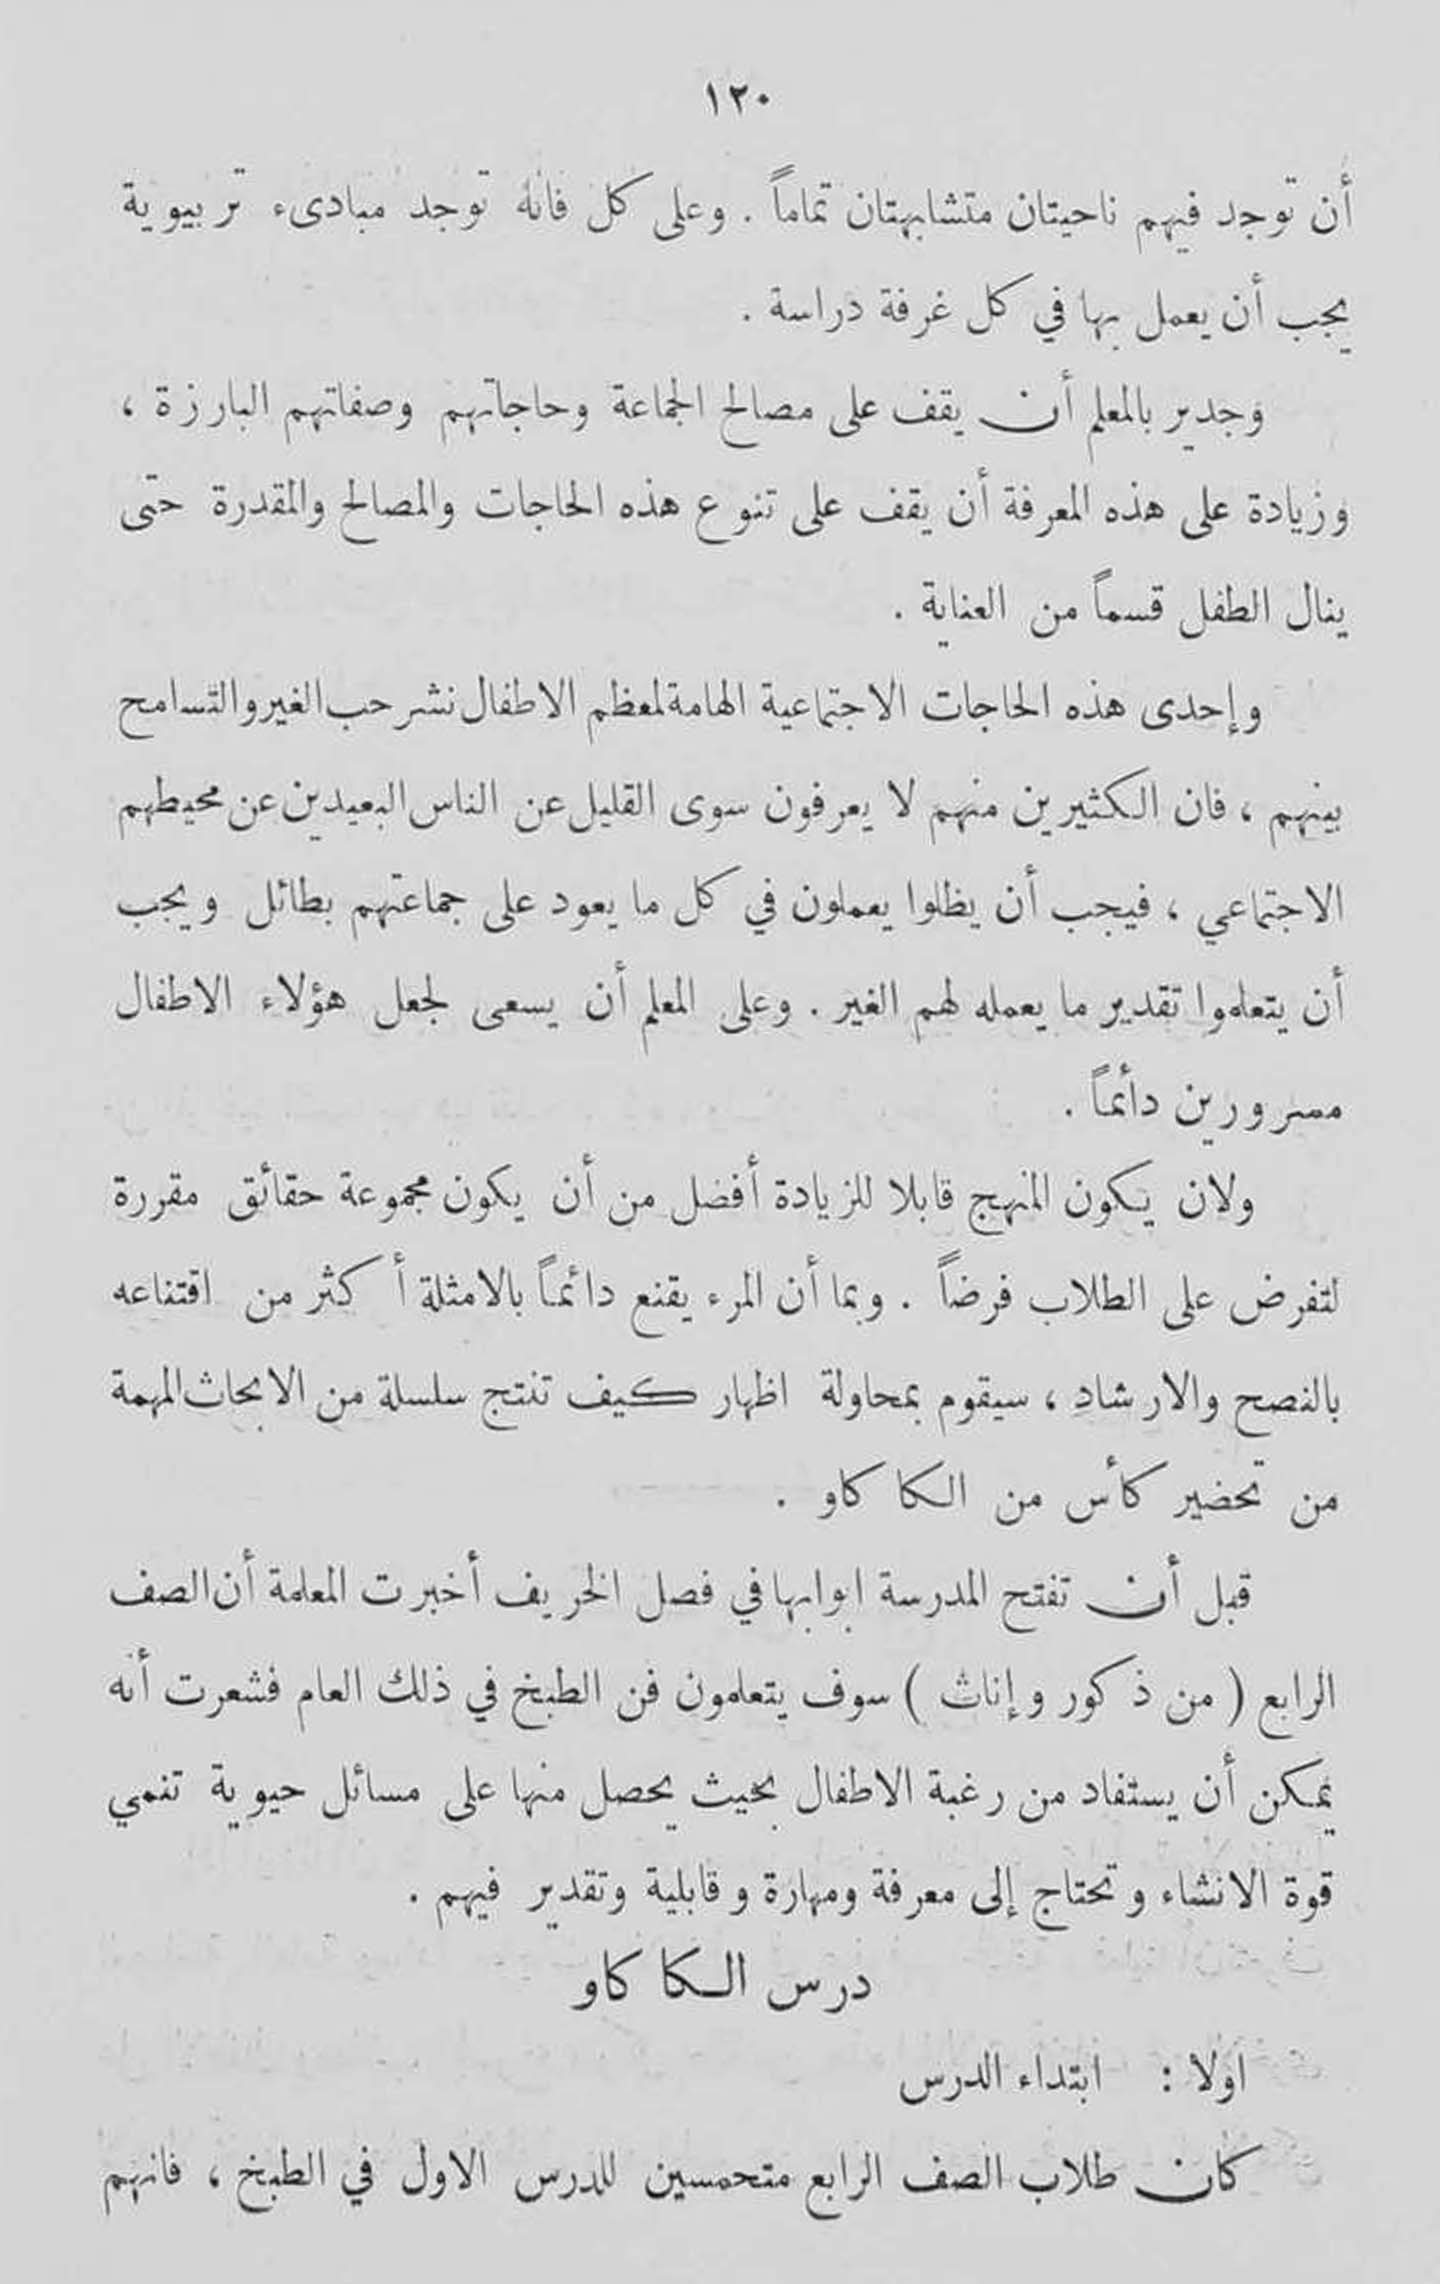 ١٢٠
أن توجد فيهم ناحيتان متشابهتان تماماً . وعلى كل فانه توجد مبادىء تربيوية
يجب أن يعمل بها في كل غرفة دراسة .
وجدير بالمعلم أن يقف على مصالح الجماعة وحاجاتهم وصفاتهم البارزة ،
وزيادة على هذه المعرفة أن يقف على تنوع هذه الحاجات والمصالح والمقدرة حتى
ينال الطفل قسماً من العناية .
وإحدى هذه الحاجات الاجتماعية الهامة لمعظم الاطفال نشر حب الغير والتسامح
بينهم ، فان الكثيرين منهم لا يعرفون سوى القليل عن الناس البعيدين عن محيطهم
الاجتماعي ، فيجب أن يظلوا يعملون في كل ما يعود على جماعتهم بطائل ويجب
أن يتعلموا تقدير ما يعمله لهم الغير . وعلى المعلم أن يسعى لجعل هؤلاء الاطفال
مسرورين دأئماً .
ولان يكون المنهج قابلا للزيادة أفضل من أن يكون مجموعة حقائق مقررة
لتفرض على الطلاب فرضاً . وبما أن المرء يقنع دائماً بالامثلة أكثر من اقتناعه
بالنصح والارشاد ، سيقوم بمحاولة اظهار كيف تنتج سلسلة من الابحاث المهمة
من تحضير كأس من الكاكاو .
قبل أن تفتح المدرسة ابوابها في فصل الخريف أخبرت المعلمة أن الصف
الرابع ( من ذكور وإناث ) سوف يتعلمون فن الطبخ في ذلك العام فشعرت أنه
يمكن أن يستفاد من رغبة الاطفال بحيث يحصل منها على مسائل حيوية تنمي
قوة الانشاء وتحتاج إلى معرفة ومهارة وقابلية وتقدير فيهم .
درس الكاكاو
اولا : ابتداء الدرس
كان طلاب الصف الرابع متحمسين للدرس الاول في الطبخ ، فانهم